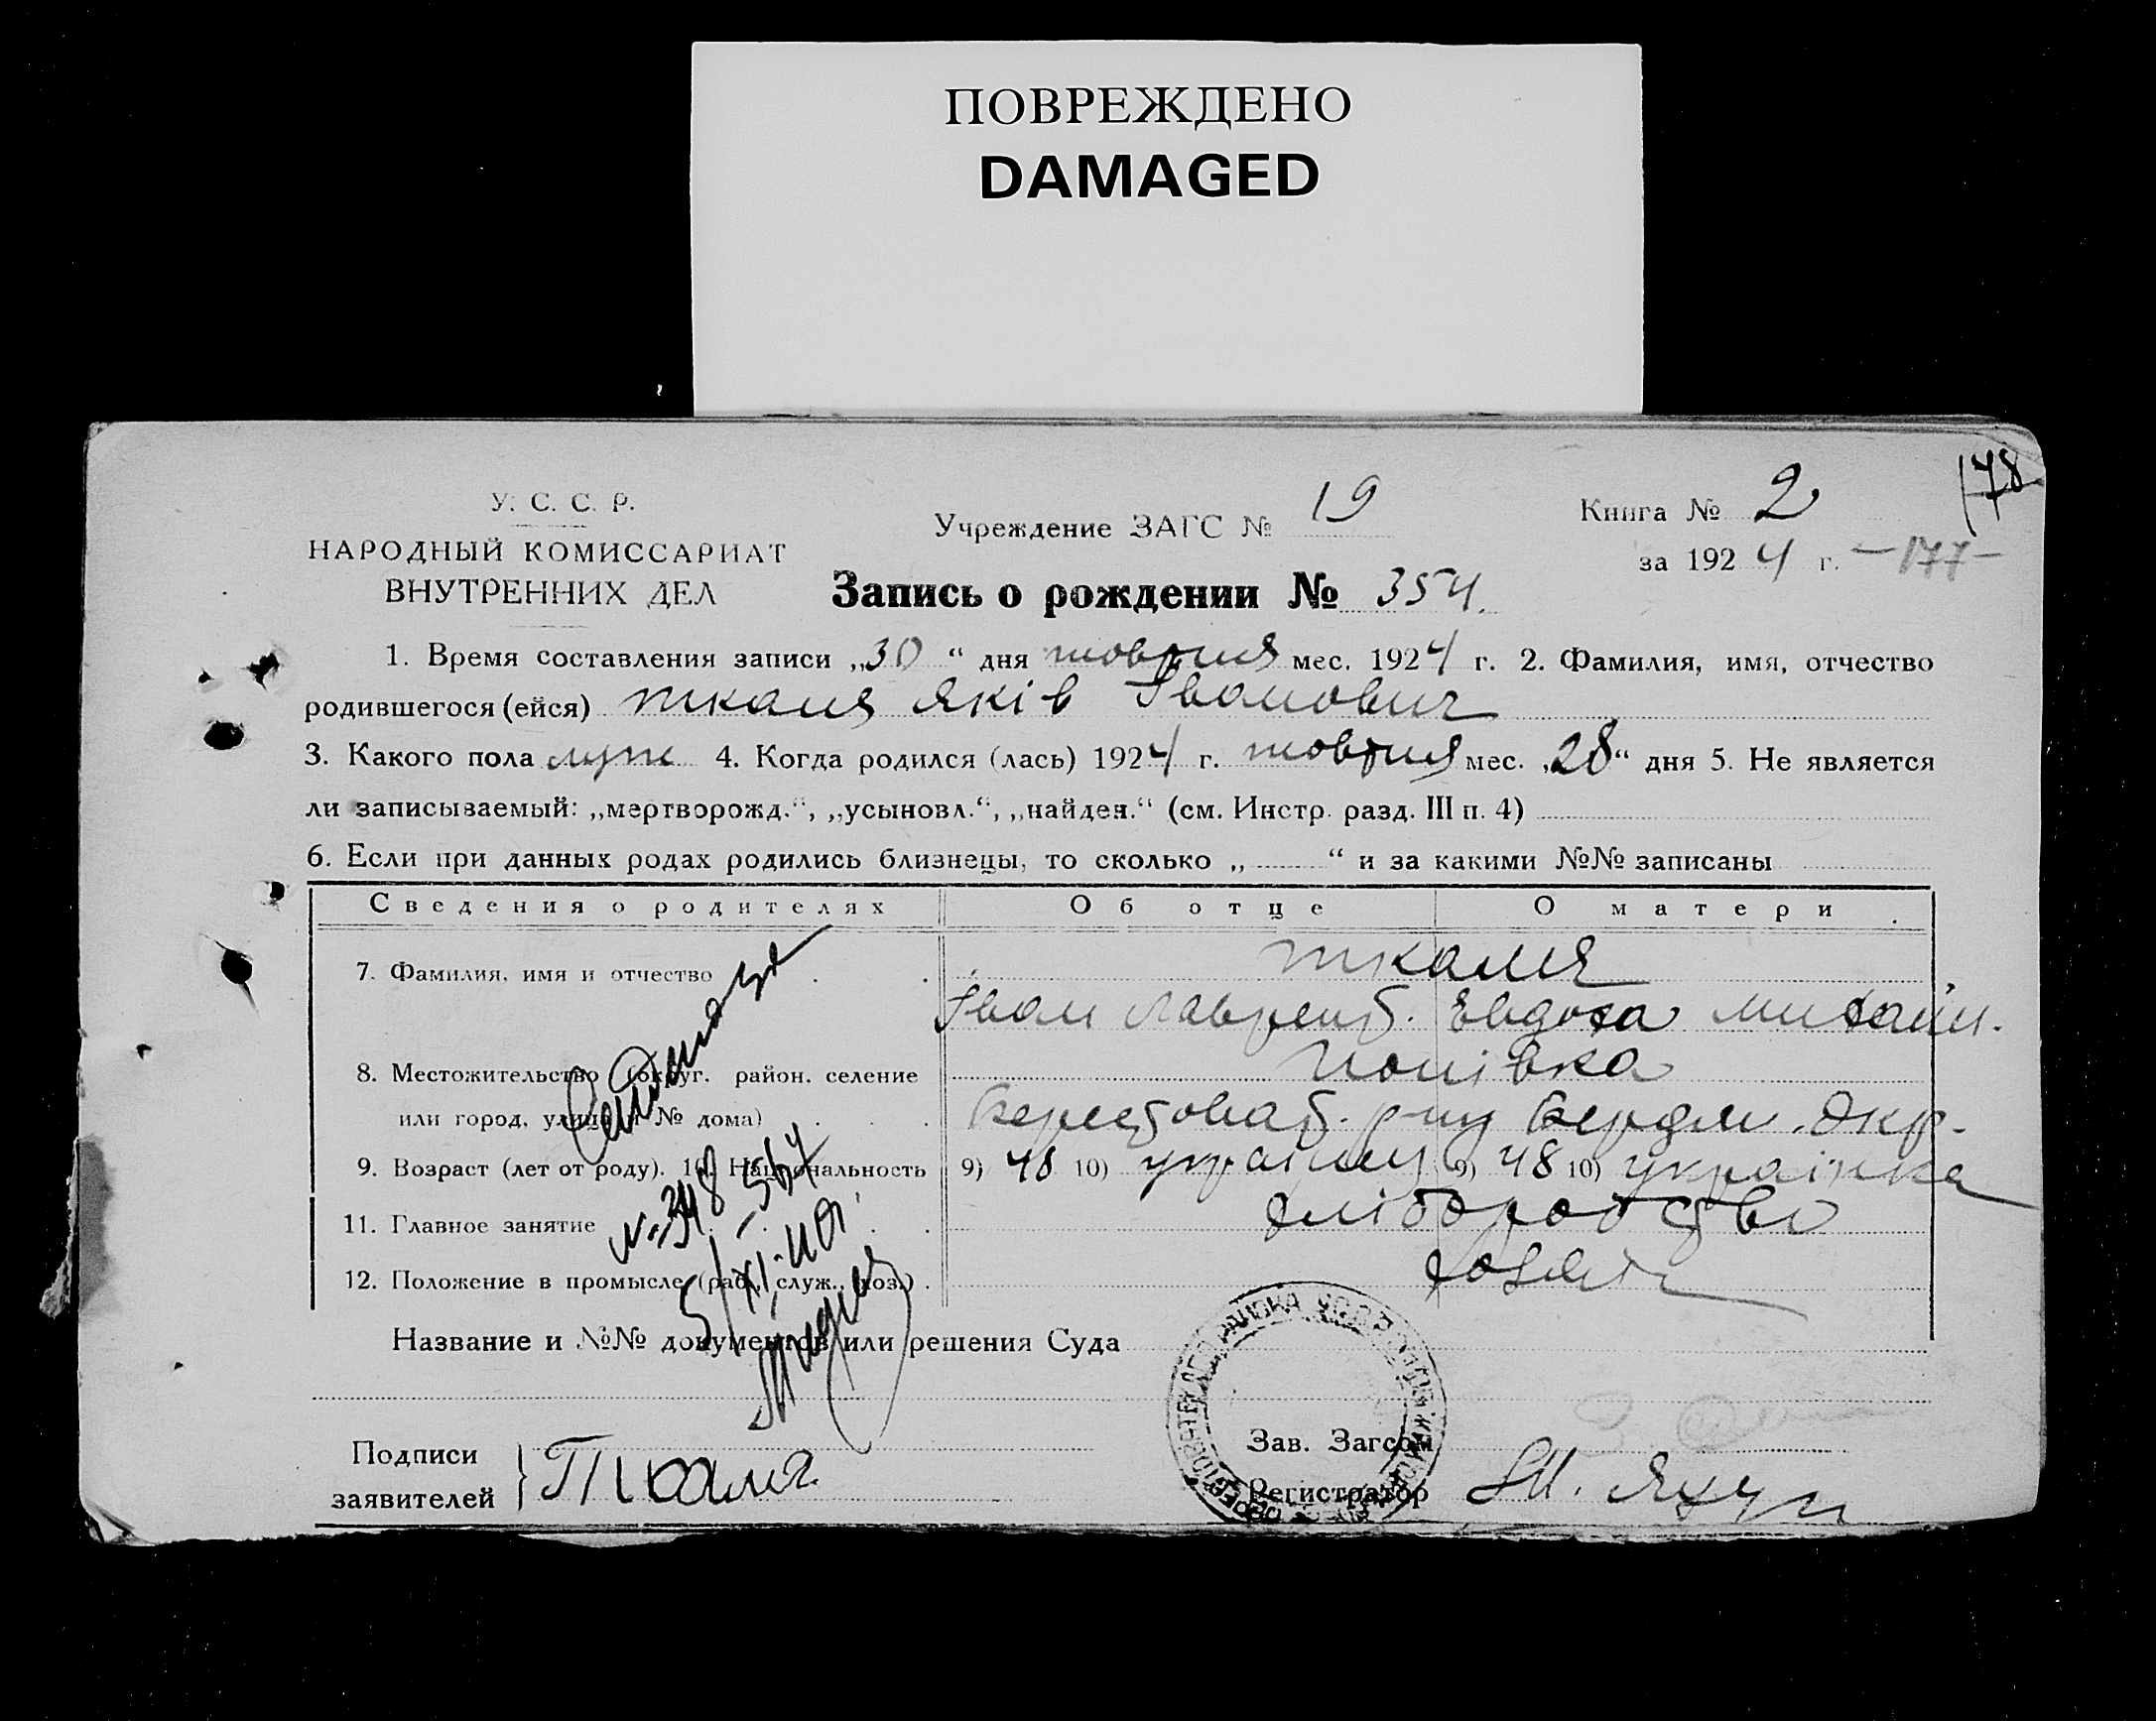 ПОВРЕЖДЕНО
DAMAGED
178
У. С. С. Р.
НАРОДНЫЙ КОМИССАРИАТ
ВНУТРЕННИХ ДЕЛ
Учреждение ЗАГС № 19
Книга № 2
за 1924 г. —177—
Запись о рождении № 354.
1. Время составления записи „30 “ дня жовтня мес. 1924 г. 2. Фамилия, имя, отчество
родившегося (ейся) Ткаля Яків Іванович
3. Какого пола муж 4. Когда родился (лась) 1924 г. жовтня мес. „28“ дня 5. Не является
ли записываемый: „мертворожд.“, „усыновл.“, „найден.“ (см. Инстр. разд. III п. 4)
6. Если при данных родах родились близнецы, то сколько „ “ и за какими №№ записаны
Сведения о родителях Об отце О матери
7. Фамилия, имя и отчество Ткаля
Іван Лаврент. Евдоха Михайл.
8. Местожительство (округ. район. селение Попівка
или город, улица и № дома) Берестоват. р-ну Бердян. Окр.
9. Возраст (лет от роду). 10. Национальность 9) 48 10) украінец 9) 48 10) украінка
11. Главное занятие хліборобство
12. Положение в промысле (раб., служ., хоз.) хозяін
№ 348 - 564
5/XI
Название и №№ документов или решения Суда
Подписи
заявителей Ткаля
Зав. Загсом
Регистратор